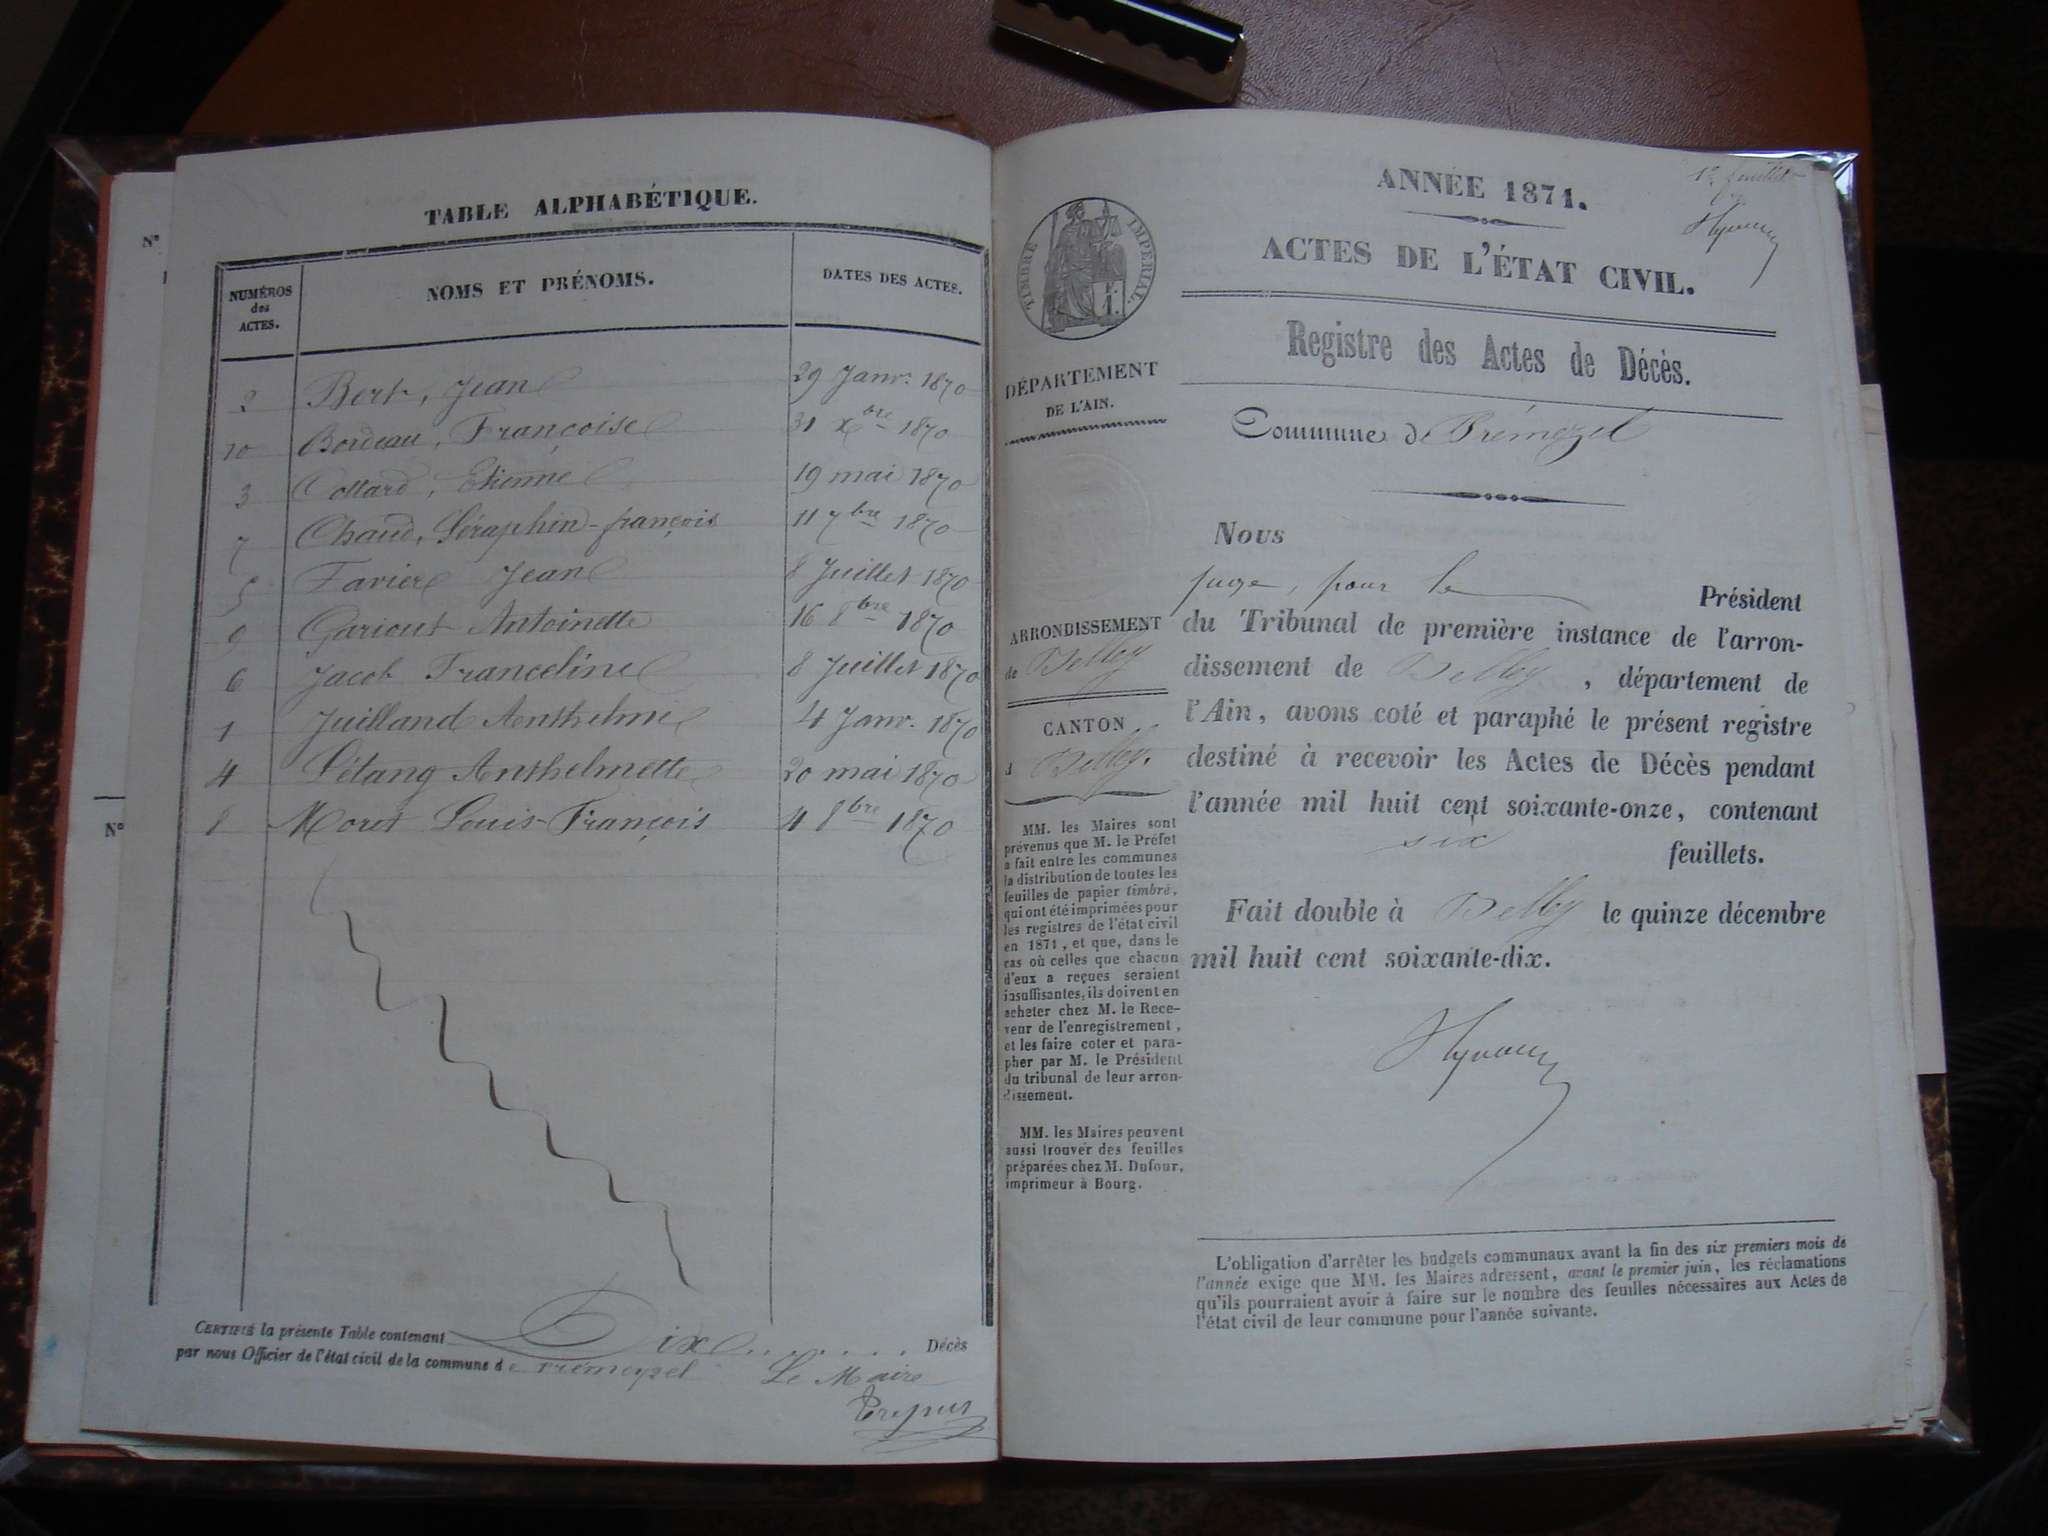 TABLE ALPHABÉTIQUE.
NUMÉROS des ACTES. NOMS ET PRÉNOMS. DATES DES ACTES.
2 Bert, Jean 29 Janv. 1870
10 Bordeau, Françoise 31 xbre 1870
3 Collard, Etienne 19 mai 1870
7 Chaud, Séraphin-françois 11 7bre 1870
5 Favier Jean 8 Juillet 1870
9 Gariout Antoinette 16 8bre 1870
6 Jacob Franceline 8 Juillet 1870
1 Juilland Anthelme 4 Janv. 1870
4 Létang Anthelmette 20 mai 1870
8 Moret Louis-François 4 8bre 1870
CERTIFIÉ la présente Table contenant Dix Décès
par nous Officier de l'état civil de la commune de Prémeyzel
Le Maire
N°
N°
ANNÉE 1871.
ACTES DE L'ÉTAT CIVIL.
Registre des Actes de Décès.
Commune de Prémezel
TIMBRE IMPÉRIAL.
1 F.
DÉPARTEMENT
DE L'AIN.
ARRONDISSEMENT
de Belley
CANTON
d Belley.
MM. les Maires sont
prévenus que M. le Préfet
a fait entre les communes
la distribution de toutes les
feuilles de papier timbré,
qui ont été imprimées pour
les registres de l'état civil
en 1871, et que, dans le
cas où celles que chacun
d'eux a reçues seraient
insuffisantes, ils doivent en
acheter chez M. le Rece-
veur de l'enregistrement,
et les faire coter et para-
pher par M. le Président
du tribunal de leur arron-
dissement.
MM. les Maires peuvent
aussi trouver des feuilles
préparées chez M. Dufour,
imprimeur à Bourg.
Nous
juge, pour le Président
du Tribunal de première instance de l'arron-
dissement de Belley, département de
l'Ain, avons coté et paraphé le présent registre
destiné à recevoir les Actes de Décès pendant
l'année mil huit cent soixante-onze, contenant
six feuillets.
Fait double à Belley le quinze décembre
mil huit cent soixante-dix.
L'obligation d'arrêter les budgets communaux avant la fin des six premiers mois de
l'année exige que MM. les Maires adressent, avant le premier juin, les réclamations
qu'ils pourraient avoir à faire sur le nombre des feuilles nécessaires aux Actes de
l'état civil de leur commune pour l'année suivante.